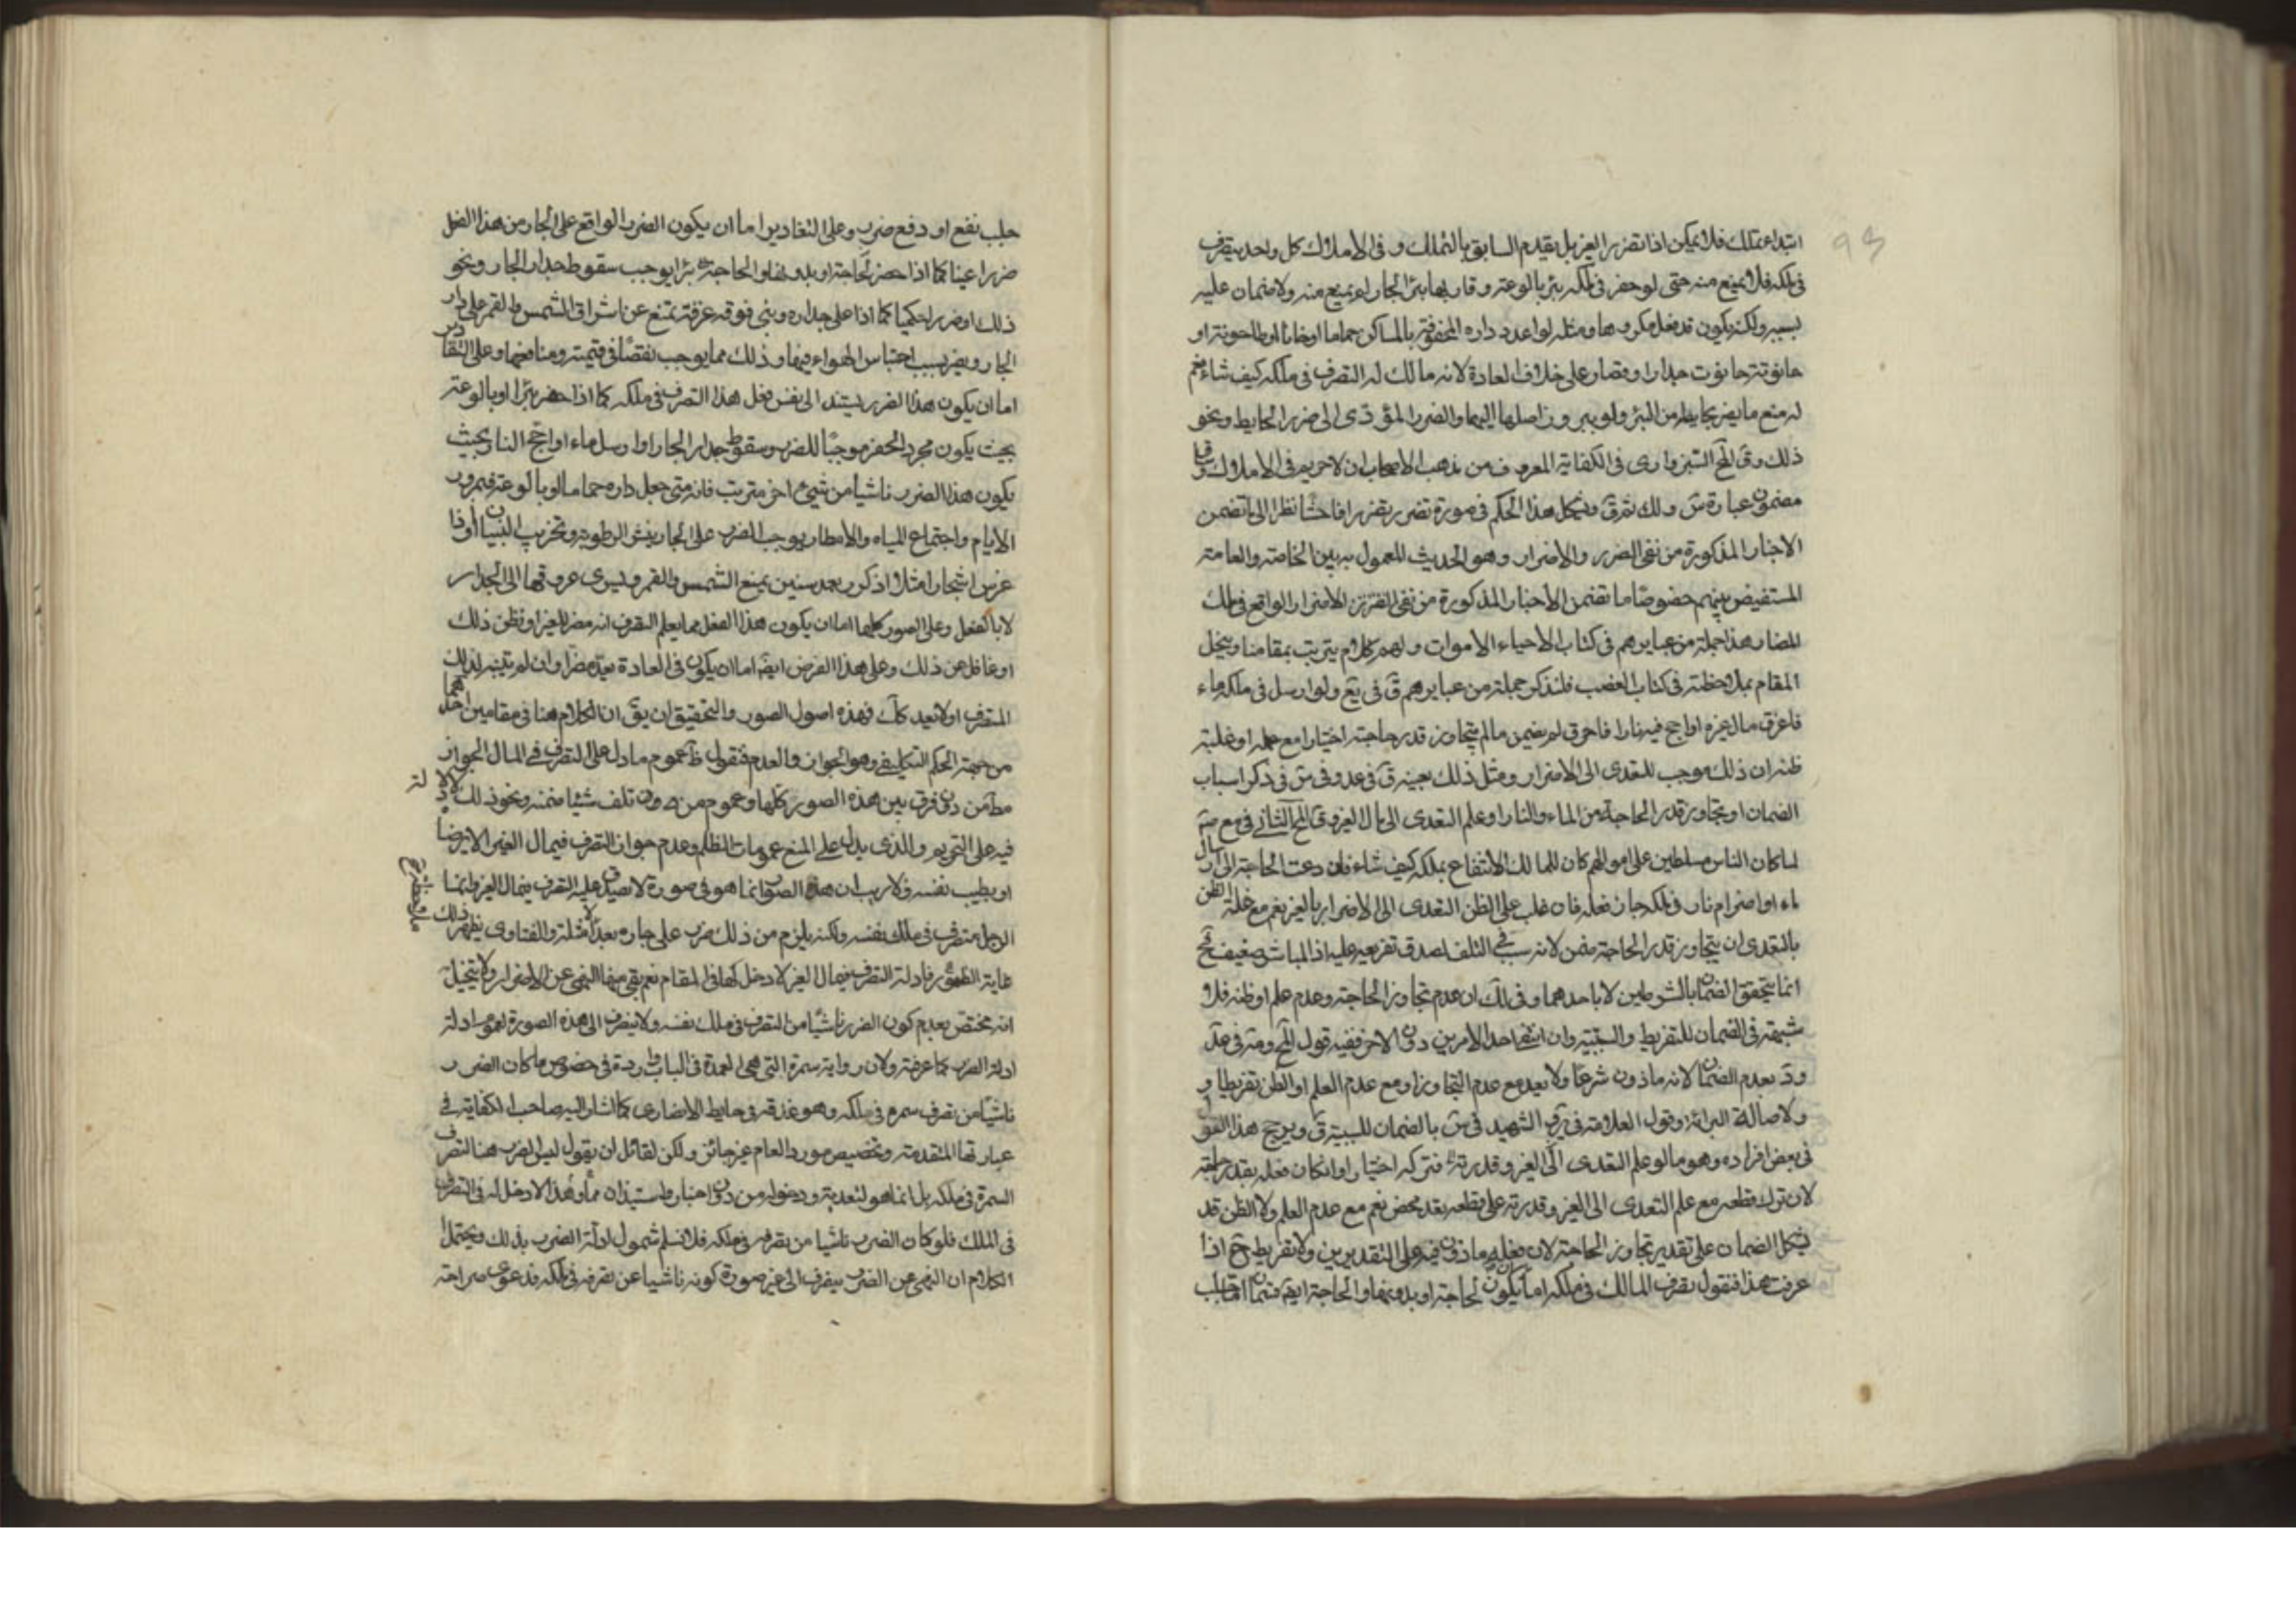 ابتداء تملك فلا يمكن اذا تضرر الغير بل يقدم السابق بالتملك و فى الاملاك كل واحد يتصرف
فى ملكه فلا يمنع منه حتى لو حفر فى ملكه بئر بالوعة و قاربها بئر الجار لم يمنع منه ولا ضمان عليه
بسببه ولكنه يكون قد فعل مكروها ومثله لو اعدد داره المحفوفة بالمساكن حماما او خانا او طاحونة او
حانوته حانوت حداد او قصار على خلاف العادة لانه مالك له التصرف فى ملكه كيف شاء نعم
له منع ما يضر بحايطه من البئر ولو ببرون اصلها اليها والضرر المؤدى الى ضرر الحايط ونحو
ذلك وق المح السبزوارى فى الكفاية المعروف من مذهب الاصحاب ان لا حريم فى الاملاك وقيل
مضمون عبارة س ولك ثم ق ويشكل هذا الحكم فى صورة تضرر تضررا فاحشا نظرا الى تضمن
الاخبار المذكورة من نفى الضرر والاضرار وهو الحديث المعمول به بين الخاصة والعامة
المستفيض بينهم خصوصًا ما تضمن الاخبار المذكورة من نفى الاضرار الواقع فى ملك
المضار هذا جملة من عبايرهم فى كتاب الاحياء الاموات ولهم كلام يترتب بمقامنا وينحل
المقام بملاحظته فى كتاب الغصب فلنذكر جملة من عبايرهم ق فى يع ولو ارسل فى ملكه ماء
فاغرق مال غيره او اجج فيه نارا فاحرق لم يضمن مالم يتجاوز قدر حاجته اختيارا مع علمه او غلبة
ظنه ان ذلك موجب للتعدى الى الاضرار ومثل ذلك بعينه ق فى عد وفى س فى ذكر اسباب
الضمان او يتجاوز قدر الحاجة من الماء والنار او علم التعدى الى مال الغير وق المح الثانى فى مع صد
لما كان الناس مسلطين على اموالهم كان للمالك الانتفاع بملكه كيف شاء فان دعت الحاجة الى ارسال
ماء او اضرام نار فى ملكه جاز فعله فان غلب على الظن التعدى الى الاضرار بالغير نعم مع غلبة الظن
بالتعدى ان يتجاوز قدر الحاجة ضمن لانه سبب فى التلف لصدق تفريعه عليه اذ المباشر ضعيف فح
انما يتحقق الضمان بالشرطين لا باحدهما وفى لك ان عدم تجاوز الحاجة وعدم علم او ظنه فلا
شبهة فى الضمان للتفريط والسببية وان انتفى احد الامرين دون الاخر ففيه قول المح ومنه فى عد
ود بعدم الضمان لانه ماذون شرعًا ولا يعد مع عدم التجاوز او مع عدم العلم او الظن تفريطا و
ولاصالة البرائة وقول العلامة فى ير و الشهيد فى س بالضمان للسببية ق ويرجح هذا القول
فى بعض افراده وهو ما لو علم التعدى الى الغير وقدرته فتركه اختيارا وان كان فعله بقدر حاجته
لان ترك قطعه مع علم التعدى الى الغير وقدرته على قطعه تعد محض نعم مع عدم العلم ولا الظن قد
يشكل الضمان على تقدير تجاوز الحاجة لان فعله ماذون فيه على التقديرين ولا تفريط ح اذا
عرفت هذا فنقول تصرف المالك فى ملكه اما ان يكون لحاجة او بدونها والحاجة ايضا قسمان اما جلب
جلب نفع او دفع ضرر وعلى التقادير اما ان يكون الضرر الواقع على الجار من هذا الفعل
ضررا عينا كما اذا حفر لحاجة او بدونها والحاجة بئرا يوجب سقوط جدار الجار ونحو
ذلك او ضررا حكميا كما اذا على جداره وبنى فوقه غرفة يمتنع عن اشراق الشمس والقمر على دار
الجار ويضر بسبب احتباس الهواء فيها وذلك مما يوجب نقصًا فى قيمته ومنافعها وعلى التقادير
اما ان يكون هذا الضرر يستند الى نفس فعل هذا التصرف فى ملكه كما اذا حفر بئرا او بالوعة
بحيث يكون مجرد الحفر موجبًا للضرر وسقوط جدار الجار او ارسل ماء او اجج النار بحيث
يكون هذا الضرر ناشيا من شيئ اخر مترتب فانه متى جعل داره حماما او بالوعة فبمرور
الايام واجتماع المياه والامطار يوجب الضرر على الجار بنش الرطوبة وتخريب البنيان او اذا
غرس اشجارا مثلا اذ كبر بعد سنين يمنع الشمس والقمر ويسرى عروقها الى الجدار
لا بالفعل وعلى الصور كلها اما ان يكون هذا الفعل مما يعلم المتصرف انه مضر للغير او نظن ذلك
او غافل عن ذلك وعلى هذا الفرض ايضا اما ان يكون فى العادة يعد مضرا وان لم يتنبه لذلك
المتصرف او لا يعد كك فهذه اصول الصور والتحقيق ان يق ان الكلام هنا فى مقامين احدهما
من جهة الحكم التكليفى وهو الجواز والعدم فنقول ظ عموم ما دل على التصرف فى المال الجواز
مط من دون فرق بين هذه الصور كلها وعموم من دون تلف شيئا ضمنه ونحو ذلك لا دلالة
فيه على التحريم والذى يدل على المنع عمومات الظلم وعدم جواز التصرف فيمال الغير الا برضا
او بطيب نفسه ولا ريب ان هذه الصور انما هو فى صورة لا يصدق عليه التصرف فيمال الغير وانما
الرجل متصرف فى ملك نفسه ولكنه يلزم من ذلك ضرر على جاره بعد الامثلة والفتاوى يظهر ذلك
غاية الظهور فادلة التصرف فيمال الغير لا دخل لها فى المقام نعم بقى ههنا النهى عن الاضرار ولا يتخيل
انه مختص بعدم كون الضرر ناشيًا من التصرف فى ملك نفسه ولا ينصرف الى هذه الصورة لعموم ادلة
ادلة الضرر كما عرفته ولان رواية سمرة التى هى العمدة فى الباب واردة فى خصوص ما كان الضرر
ناشيًا من تصرف سمره فى ملكه وهو عذقه فى حايط الانصارى كما اشار اليه صاحب الكفاية فى
عبارتها المتقدمة وتخصيص مورد العام غير جائز ولكن لقائل ان يقول ليس الضرر هنا لتصرف
السمرة فى ملكه بل انما هو لتعديه ودخوله من دون اخبار واستيذان وهذا لا دخل له فى التصرف
فى الملك فلو كان الضرر ناشيا من تصرفه فى ملكه فلا نسلم شمول ادلة الضرر بذلك ويحتمل
الكلام ان النهى عن الضرر ينصرف الى غير صورة كونه ناشيا عن تصرفه فى ملكه فدعوى صراحته